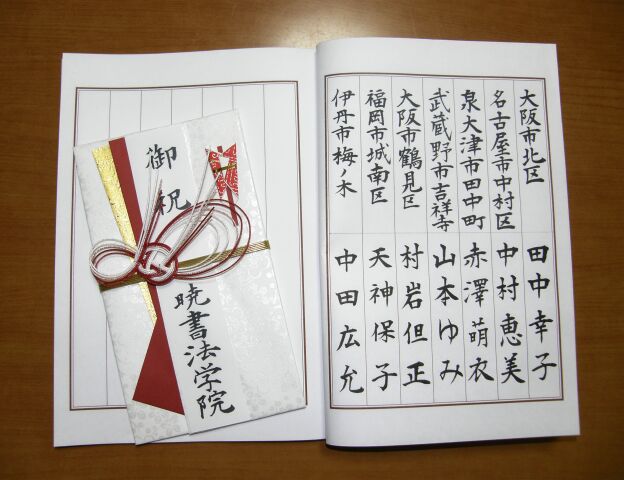 大阪市北区 田中幸子
名古屋市中村区 中村恵美
泉大津市田中町 赤澤萌衣
武蔵野市吉祥寺 山本ゆみ
大阪市鶴見区 村岩但正
福岡市城南区 天神保子
伊丹市梅ノ木 中田広允
御祝
暁書法学院